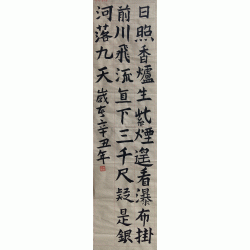 日照香爐生紫煙遥看瀑布掛
前川飛流直下三千尺疑是銀
河落九天歲在辛丑年